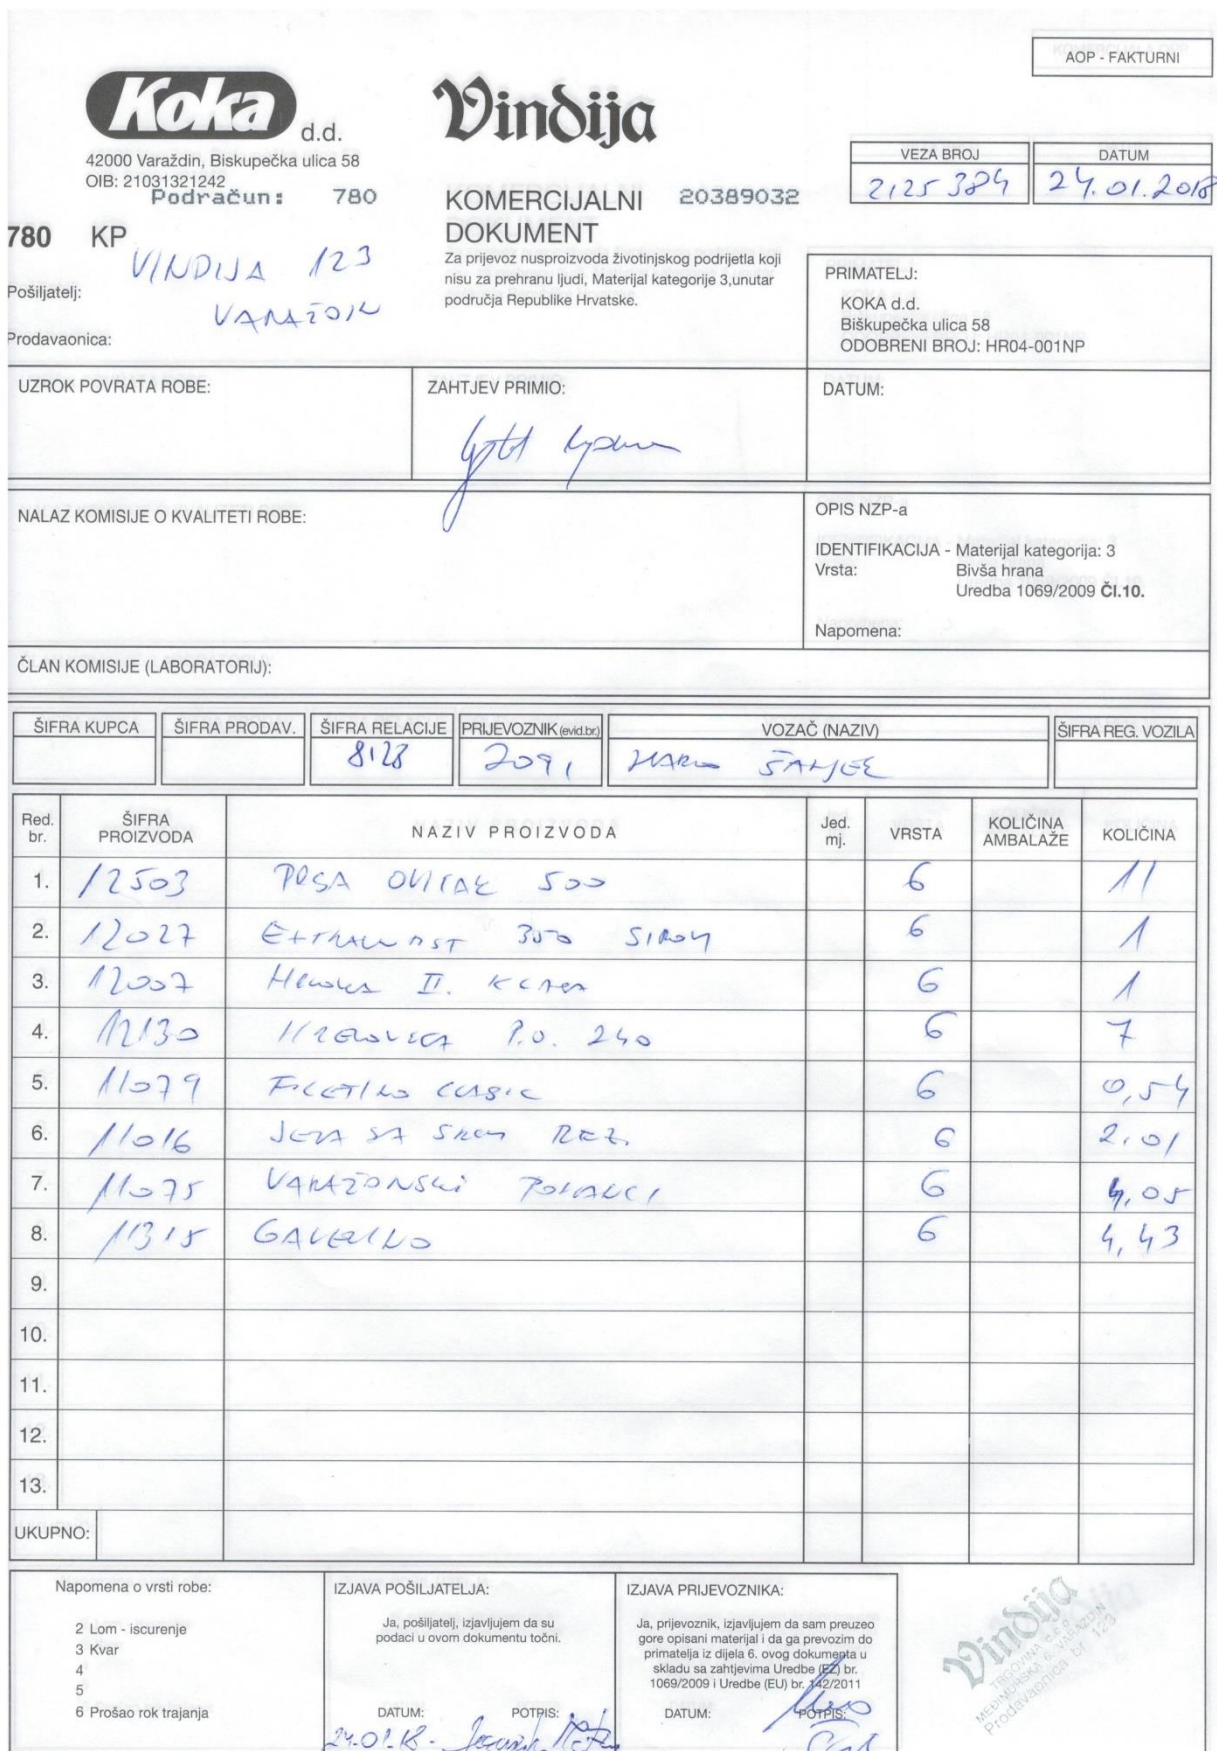 AOP - FAKTURNI
Koka d.d.
Vindija
42000 Varaždin, Biskupečka ulica 58
OIB: 21031321242
Podračun: 780
KOMERCIJALNI DOKUMENT
20389032
VEZA BROJ
2125384
DATUM
24.01.2018
780 KP
VINDIJA 123
Pošiljatelj:
Prodavaonica:
Za prijevoz nusproizvoda životinjskog podrijetla koji
nisu za prehranu ljudi, Materijal kategorije 3,unutar
područja Republike Hrvatske.
PRIMATELJ:
KOKA d.d.
Biškupečka ulica 58
ODOBRENI BROJ: HR04-001NP
UZROK POVRATA ROBE:
ZAHTJEV PRIMIO:
DATUM:
NALAZ KOMISIJE O KVALITETI ROBE:
OPIS NZP-a
IDENTIFIKACIJA - Materijal kategorija: 3
Vrsta: Bivša hrana
Uredba 1069/2009 Čl.10.
Napomena:
ČLAN KOMISIJE (LABORATORIJ):
ŠIFRA KUPCA ŠIFRA PRODAV. ŠIFRA RELACIJE PRIJEVOZNIK (evid.br.) VOZAČ (NAZIV) ŠIFRA REG. VOZILA
8128 2091
Red. br. ŠIFRA PROIZVODA NAZIV PROIZVODA Jed. mj. VRSTA KOLIČINA AMBALAŽE KOLIČINA
1. 12503 500 6 11
2. 12027 350 6 1
3. 12007 II. 6 1
4. 12130 P.O. 240 6 7
5. 11079 6 0,54
6. 11016 SA REZ. 6 2,01
7. 11075 6 4,05
8. 11315 6 4,43
9.
10.
11.
12.
13.
UKUPNO:
Napomena o vrsti robe:
2 Lom - iscurenje
3 Kvar
4
5
6 Prošao rok trajanja
IZJAVA POŠILJATELJA:
Ja, pošiljatelj, izjavljujem da su
podaci u ovom dokumentu točni.
DATUM: POTPIS:
24.01.18.
IZJAVA PRIJEVOZNIKA:
Ja, prijevoznik, izjavljujem da sam preuzeo
gore opisani materijal i da ga prevozim do
primatelja iz dijela 6. ovog dokumenta u
skladu sa zahtjevima Uredbe (EZ) br.
1069/2009 i Uredbe (EU) br. 142/2011
DATUM: POTPIS:
Vindija
TRGOVINA
MEĐIMURSKA 6, VARAŽDIN
Prodavaonica br 123